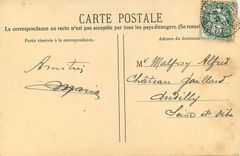 CARTE POSTALE
La correspondance au recto n'est pas acceptée par tous les pays étrangers. (Se rense
Partie réservée à la correspondance.
Adresse du destinataire
Amitiés
Mr Malfray Alfred
Château Gaillard
Andilly
Seine et Oise